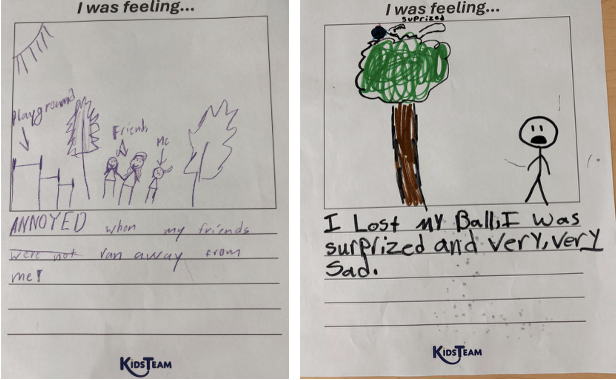 I was feeling...
playground
Friends
Me
ANNOYED when my friends
were not ran away from
me!
KIDSTEAM
I was feeling...
suprized
I Lost my Ball, I was
surprized and very, very
Sad.
KIDSTEAM